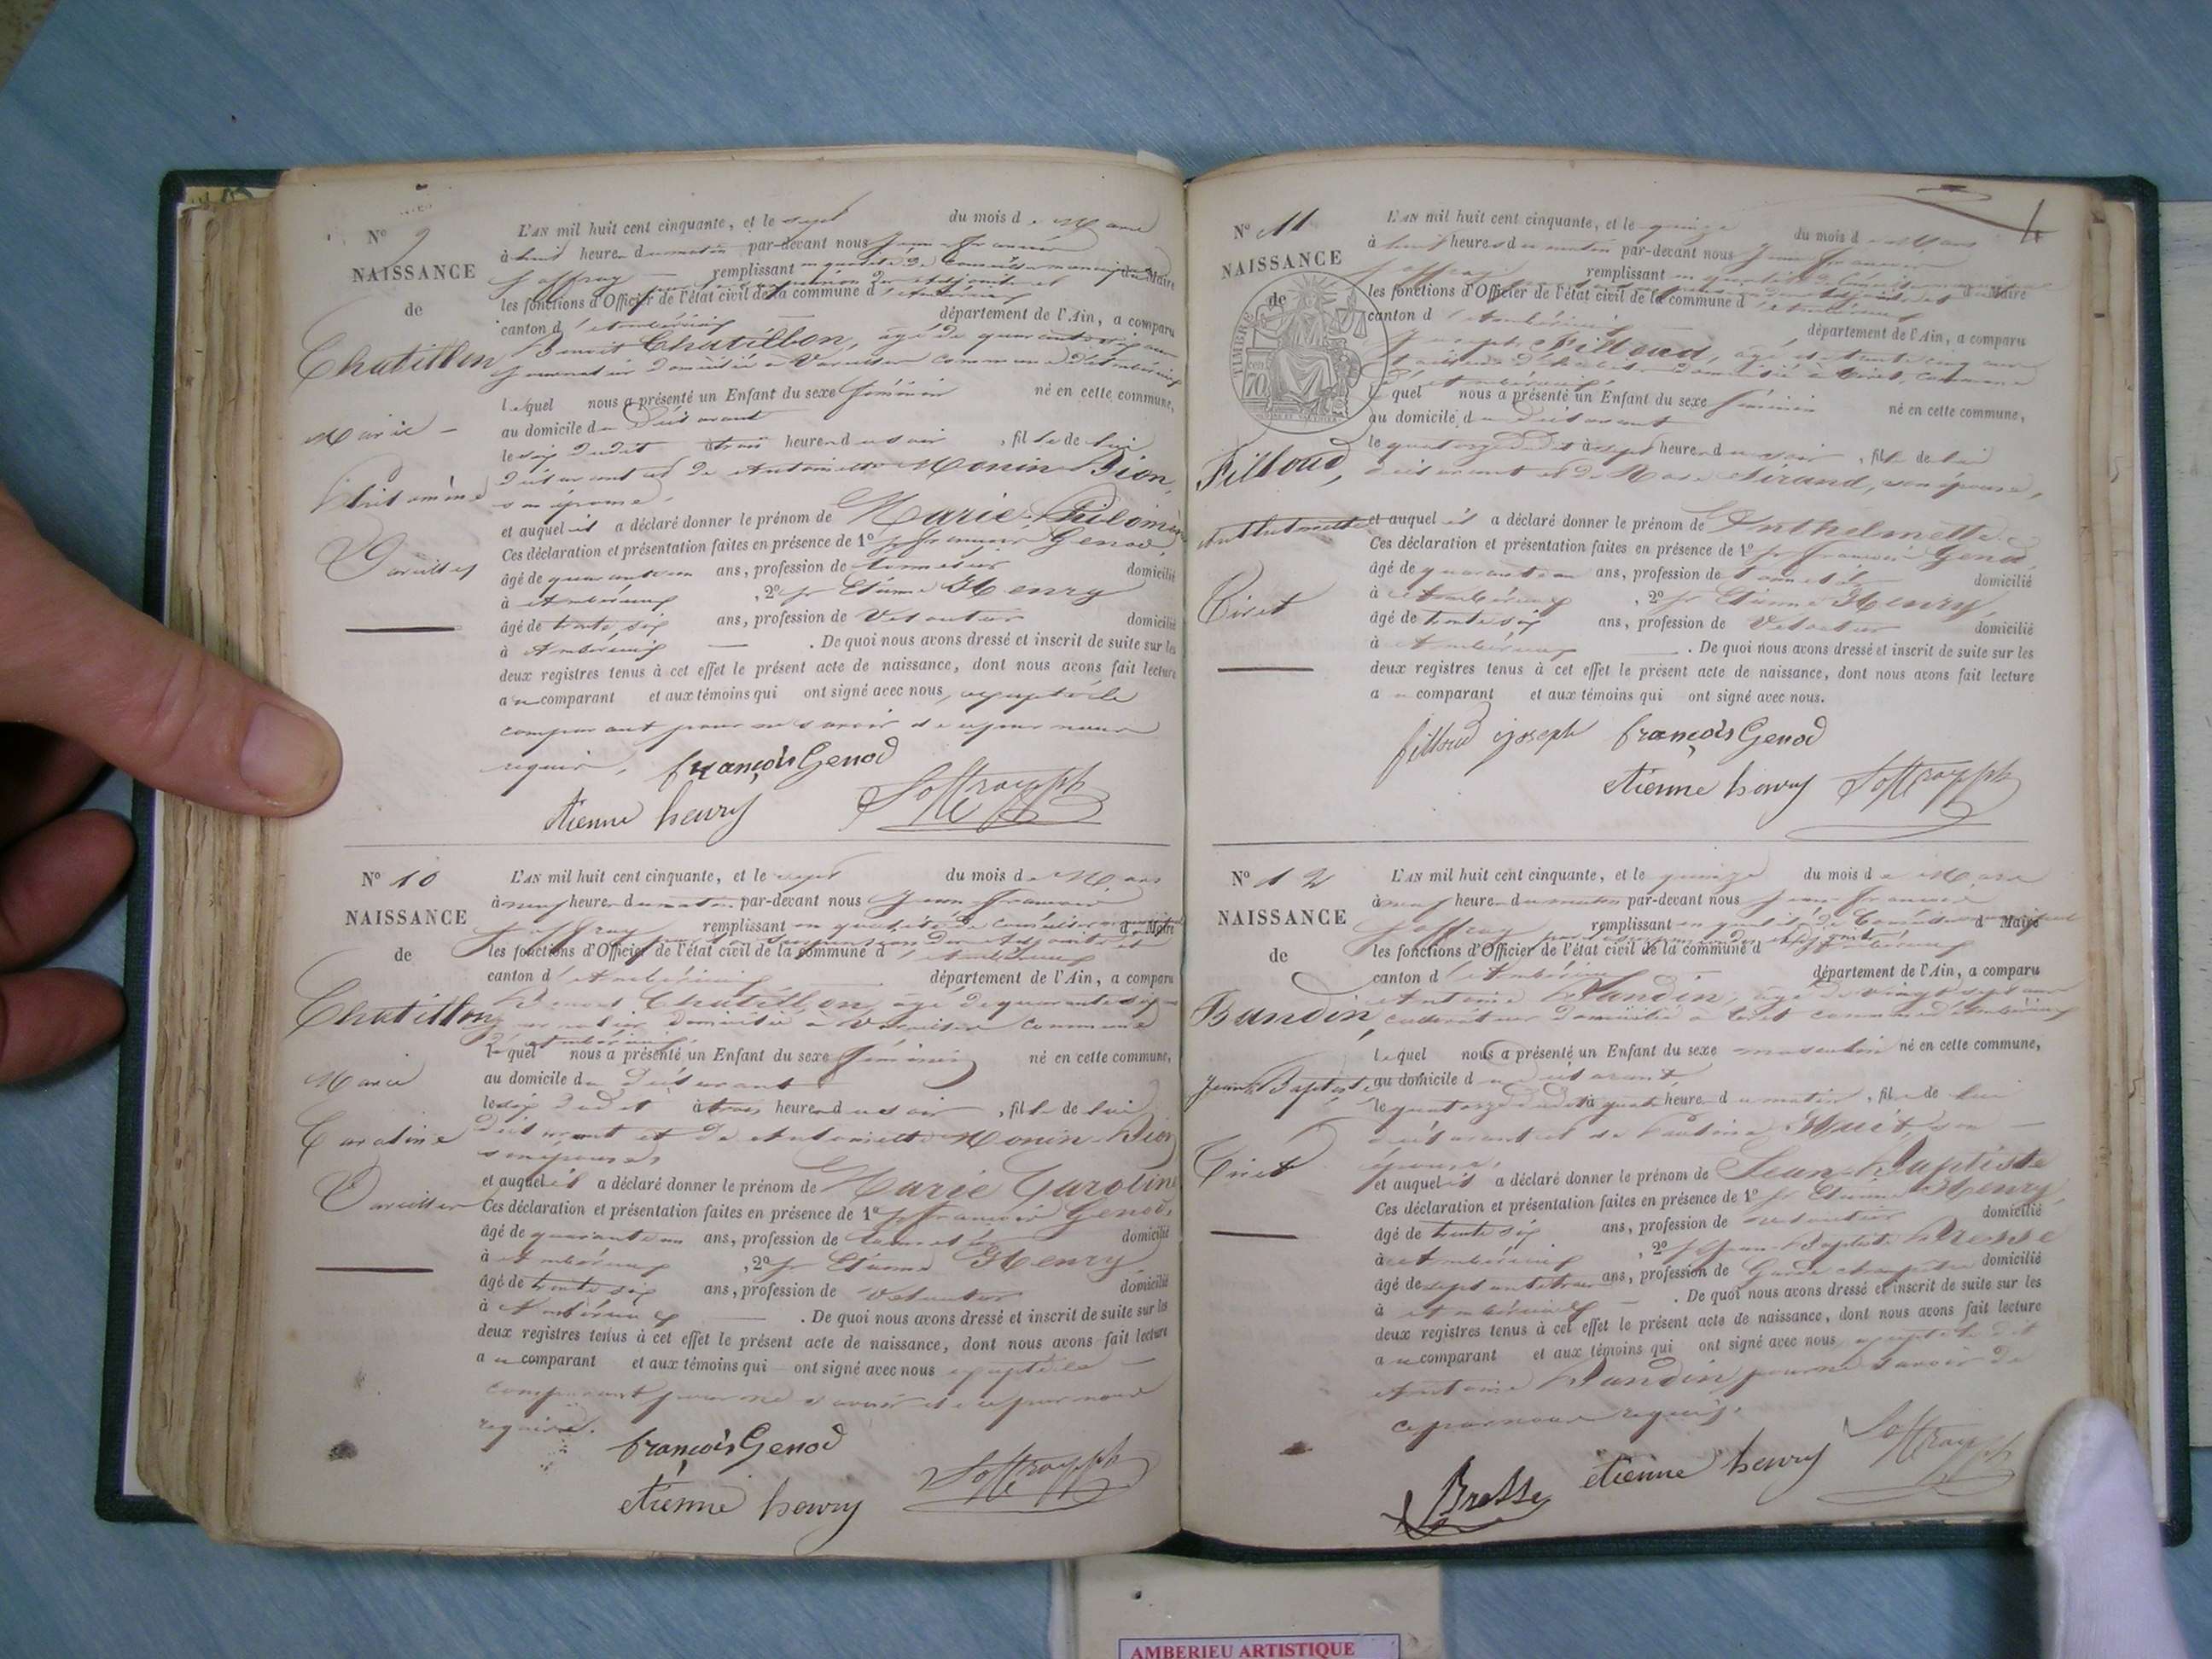 N° 9
NAISSANCE
de
Chatillon
Marie
Philomène
Vareilles
L'AN mil huit cent cinquante, et le sept du mois de Mars
à huit heures du matin par-devant nous Jean François
remplissant en qualité de Conseiller municipal
les fonctions d'Officier de l'état civil de la commune d'Ambérieux
canton d'Ambérieux département de l'Ain, a comparu
Benoit Chatillon, âgé de
journalier domicilié à Vareilles commune d'Ambérieux
lequel nous a présenté un Enfant du sexe féminin né en cette commune,
au domicile du Déclarant
le six dudit à trois heures du soir, fille de lui
déclarant et de Antoinette Monin-Dion,
son épouse,
et auquel il a déclaré donner le prénom de Marie-Philomène
Ces déclaration et présentation faites en présence de 1° sr françois Genod,
âgé de quarante un ans, profession de domicilié
à Ambérieux, 2° sr Etienne Henry
âgé de trente six ans, profession de domicilié
à Ambérieux. De quoi nous avons dressé et inscrit de suite sur les
deux registres tenus à cet effet le présent acte de naissance, dont nous avons fait lecture
au comparant et aux témoins qui ont signé avec nous, excepté le
comparant pour ne savoir de ce par nous
requis.
françois Genod
étienne henry
N° 10
NAISSANCE
de
Chatillon
Marie
Caroline
Vareilles
L'AN mil huit cent cinquante, et le sept du mois de Mars
à neuf heures du matin par-devant nous Jean François
remplissant en qualité de Conseiller municipal
les fonctions d'Officier de l'état civil de la commune d'Ambérieux
canton d'Ambérieux département de l'Ain, a comparu
Benoit Chatillon, âgé de
journalier domicilié à Vareilles commune
d'Ambérieux
lequel nous a présenté un Enfant du sexe féminin né en cette commune,
au domicile du Déclarant
le six dudit à trois heures du soir, fille de lui
déclarant et de Antoinette Monin-Dion
son épouse,
et auquel il a déclaré donner le prénom de Marie Caroline
Ces déclaration et présentation faites en présence de 1° sr françois Genod,
âgé de quarante un ans, profession de domicilié
à Ambérieux, 2° sr Etienne Henry
âgé de trente six ans, profession de domicilié
à Ambérieux. De quoi nous avons dressé et inscrit de suite sur les
deux registres tenus à cet effet le présent acte de naissance, dont nous avons fait lecture
au comparant et aux témoins qui ont signé avec nous excepté le
comparant pour ne savoir de ce par nous
requis.
françois Genod
étienne henry
N° 11
NAISSANCE
de
TIMBRE
70
Filloud,
Anthelmette
Tiret
L'AN mil huit cent cinquante, et le quinze du mois de Mars
à huit heures du matin par-devant nous Jean François
remplissant en qualité de Conseiller municipal
les fonctions d'Officier de l'état civil de la commune d'Ambérieux
canton d'Ambérieux département de l'Ain, a comparu
Joseph Filloud, âgé de trente cinq ans
domicilié à Tiret, commune
d'Ambérieux
lequel nous a présenté un Enfant du sexe féminin né en cette commune,
au domicile du Déclarant
le quatorze dudit à sept heures du soir, fille de lui
déclarant et de Rose Sirand, son épouse,
et auquel il a déclaré donner le prénom de Anthelmette
Ces déclaration et présentation faites en présence de 1° sr françois Genod,
âgé de quarante un ans, profession de domicilié
à Ambérieux, 2° sr Etienne Henry,
âgé de trente six ans, profession de domicilié
à Ambérieux. De quoi nous avons dressé et inscrit de suite sur les
deux registres tenus à cet effet le présent acte de naissance, dont nous avons fait lecture
au comparant et aux témoins qui ont signé avec nous.
filloud joseph françois Genod
étienne henry
N° 12
NAISSANCE
de
Bandin,
Jean-Baptiste
Tiret
L'AN mil huit cent cinquante, et le quinze du mois de Mars
à neuf heures du matin par-devant nous Jean François
remplissant en qualité de Conseiller municipal
les fonctions d'Officier de l'état civil de la commune d'Ambérieux
canton d'Ambérieux département de l'Ain, a comparu
Antoine Bandin, âgé de vingt sept ans
cultivateur domicilié à Tiret commune d'Ambérieux
lequel nous a présenté un Enfant du sexe masculin né en cette commune,
au domicile du déclarant,
le quatorze dudit à quatre heures du matin, fils de lui
déclarant et de Huit, son
épouse,
et auquel il a déclaré donner le prénom de Jean-Baptiste
Ces déclaration et présentation faites en présence de 1° sr Etienne Henry,
âgé de trente six ans, profession de domicilié
à Ambérieux, 2° sr Jean-Baptiste Bresse
âgé de ans, profession de Garde champêtre domicilié
à Ambérieux. De quoi nous avons dressé et inscrit de suite sur les
deux registres tenus à cet effet le présent acte de naissance, dont nous avons fait lecture
au comparant et aux témoins qui ont signé avec nous excepté le dit
Antoine Bandin pour ne savoir de
ce par nous requis.
Bresse étienne henry
AMBERIEU ARTISTIQUE